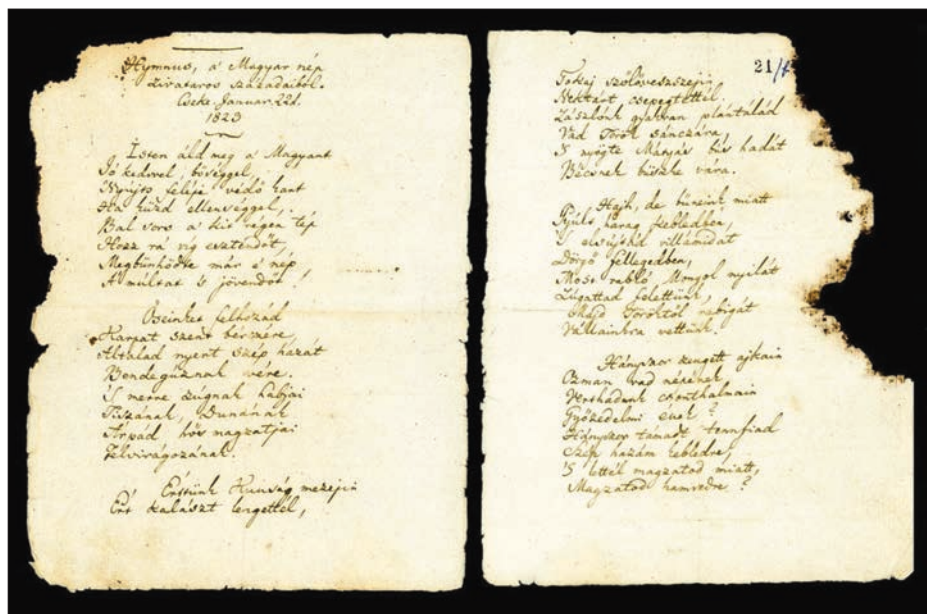 Hymnus, a' Magyar nép
zivataros századaiból.
Cseke Januar. 22d.
1823
Isten áld meg a' Magyart
Jó kedvvel, bőséggel,
Nyújts feléje védő kart
Ha küzd ellenséggel,
Bal sors a' kit régen tép
Hozz rá víg esztendőt,
Megbűnhödte már e' nép
A' múltat 's jövendőt!
Őseinket felhozád
Kárpát szent bérczére,
Általad nyert szép hazát
Bendegúznak vére.
'S merre zúgnak habjai
Tiszának, Dunának
Árpád hős magzatjai
Felvirágozának.
Értünk Kunság mezején
Ért kalászt lengettél,
21/
Tokaj szőlővesszején
Nektárt csepegtettél.
Zászlónk gyakran plántálád
Vad Török sánczára,
'S nyögte Mátyás bús hadát
Bécsnek büszke vára.
Hajh, de bűneink miatt
Gyúlt harag kebledben,
'S elsújtád villámidat
Dörgő fellegedben,
Most rabló Mongol nyilát
Zúgattad felettünk,
Majd Töröktől rabigát
Vállainkra vettünk.
Hányszor zengett ajkain
Ozman vad népének
Vert hadunk csonthalmain
Győzedelmi ének?
Hányszor támadt tennfiad
Szép hazám kebledre,
'S lettél magzatod miatt,
Magzatod hamvedre?